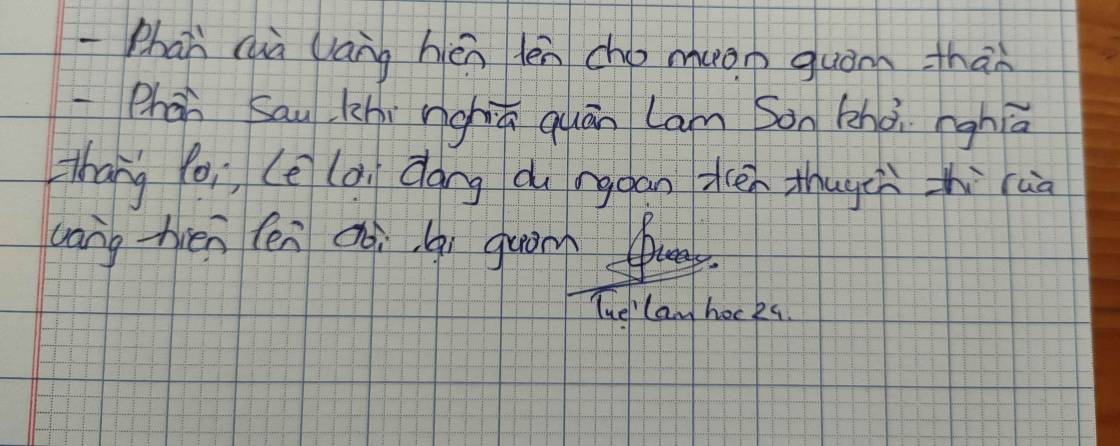 - Phần rùa vàng hiện lên cho mượn gươm thần
- Phần sau khi nghĩa quân Lam Sơn khởi nghĩa
thắng lợi, Lê Lợi đang du ngoạn trên thuyền thì rùa
vàng hiện lên đòi lại gươm
Tuệ Lam học 24.